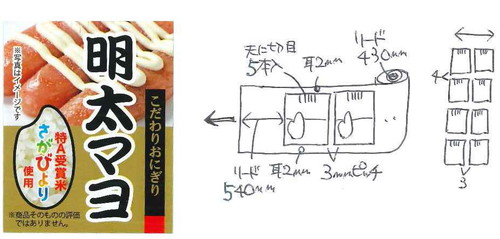 ※写真はイメージです
明太マヨ
こだわりおにぎり
特A受賞米
さがびより
使用
※商品そのものの評価
ではありません。
リード
430mm
天に切目
5本入
耳2mm
4
リード
540mm
耳2mm
3mmピッチ
3